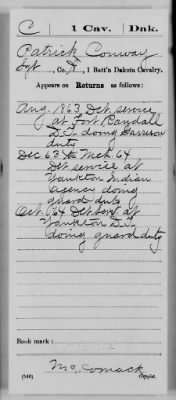 C | 1 Cav. | Dak.
Patrick Conway
Sgt, Co. A, 1 Batt'n Dakota Cavalry.
Appears on Returns as follows:
Aug. 1863 Det. service
at Fort Randall
D.T. doing Garrison
duty
Dec 63 to Mch. 64
Det service at
Yankton Indian
agency doing
guard duty
Oct. /64 Det serv. at
Yankton D.T.
doing guard duty
Book mark:
McComack
(546) Copyist.